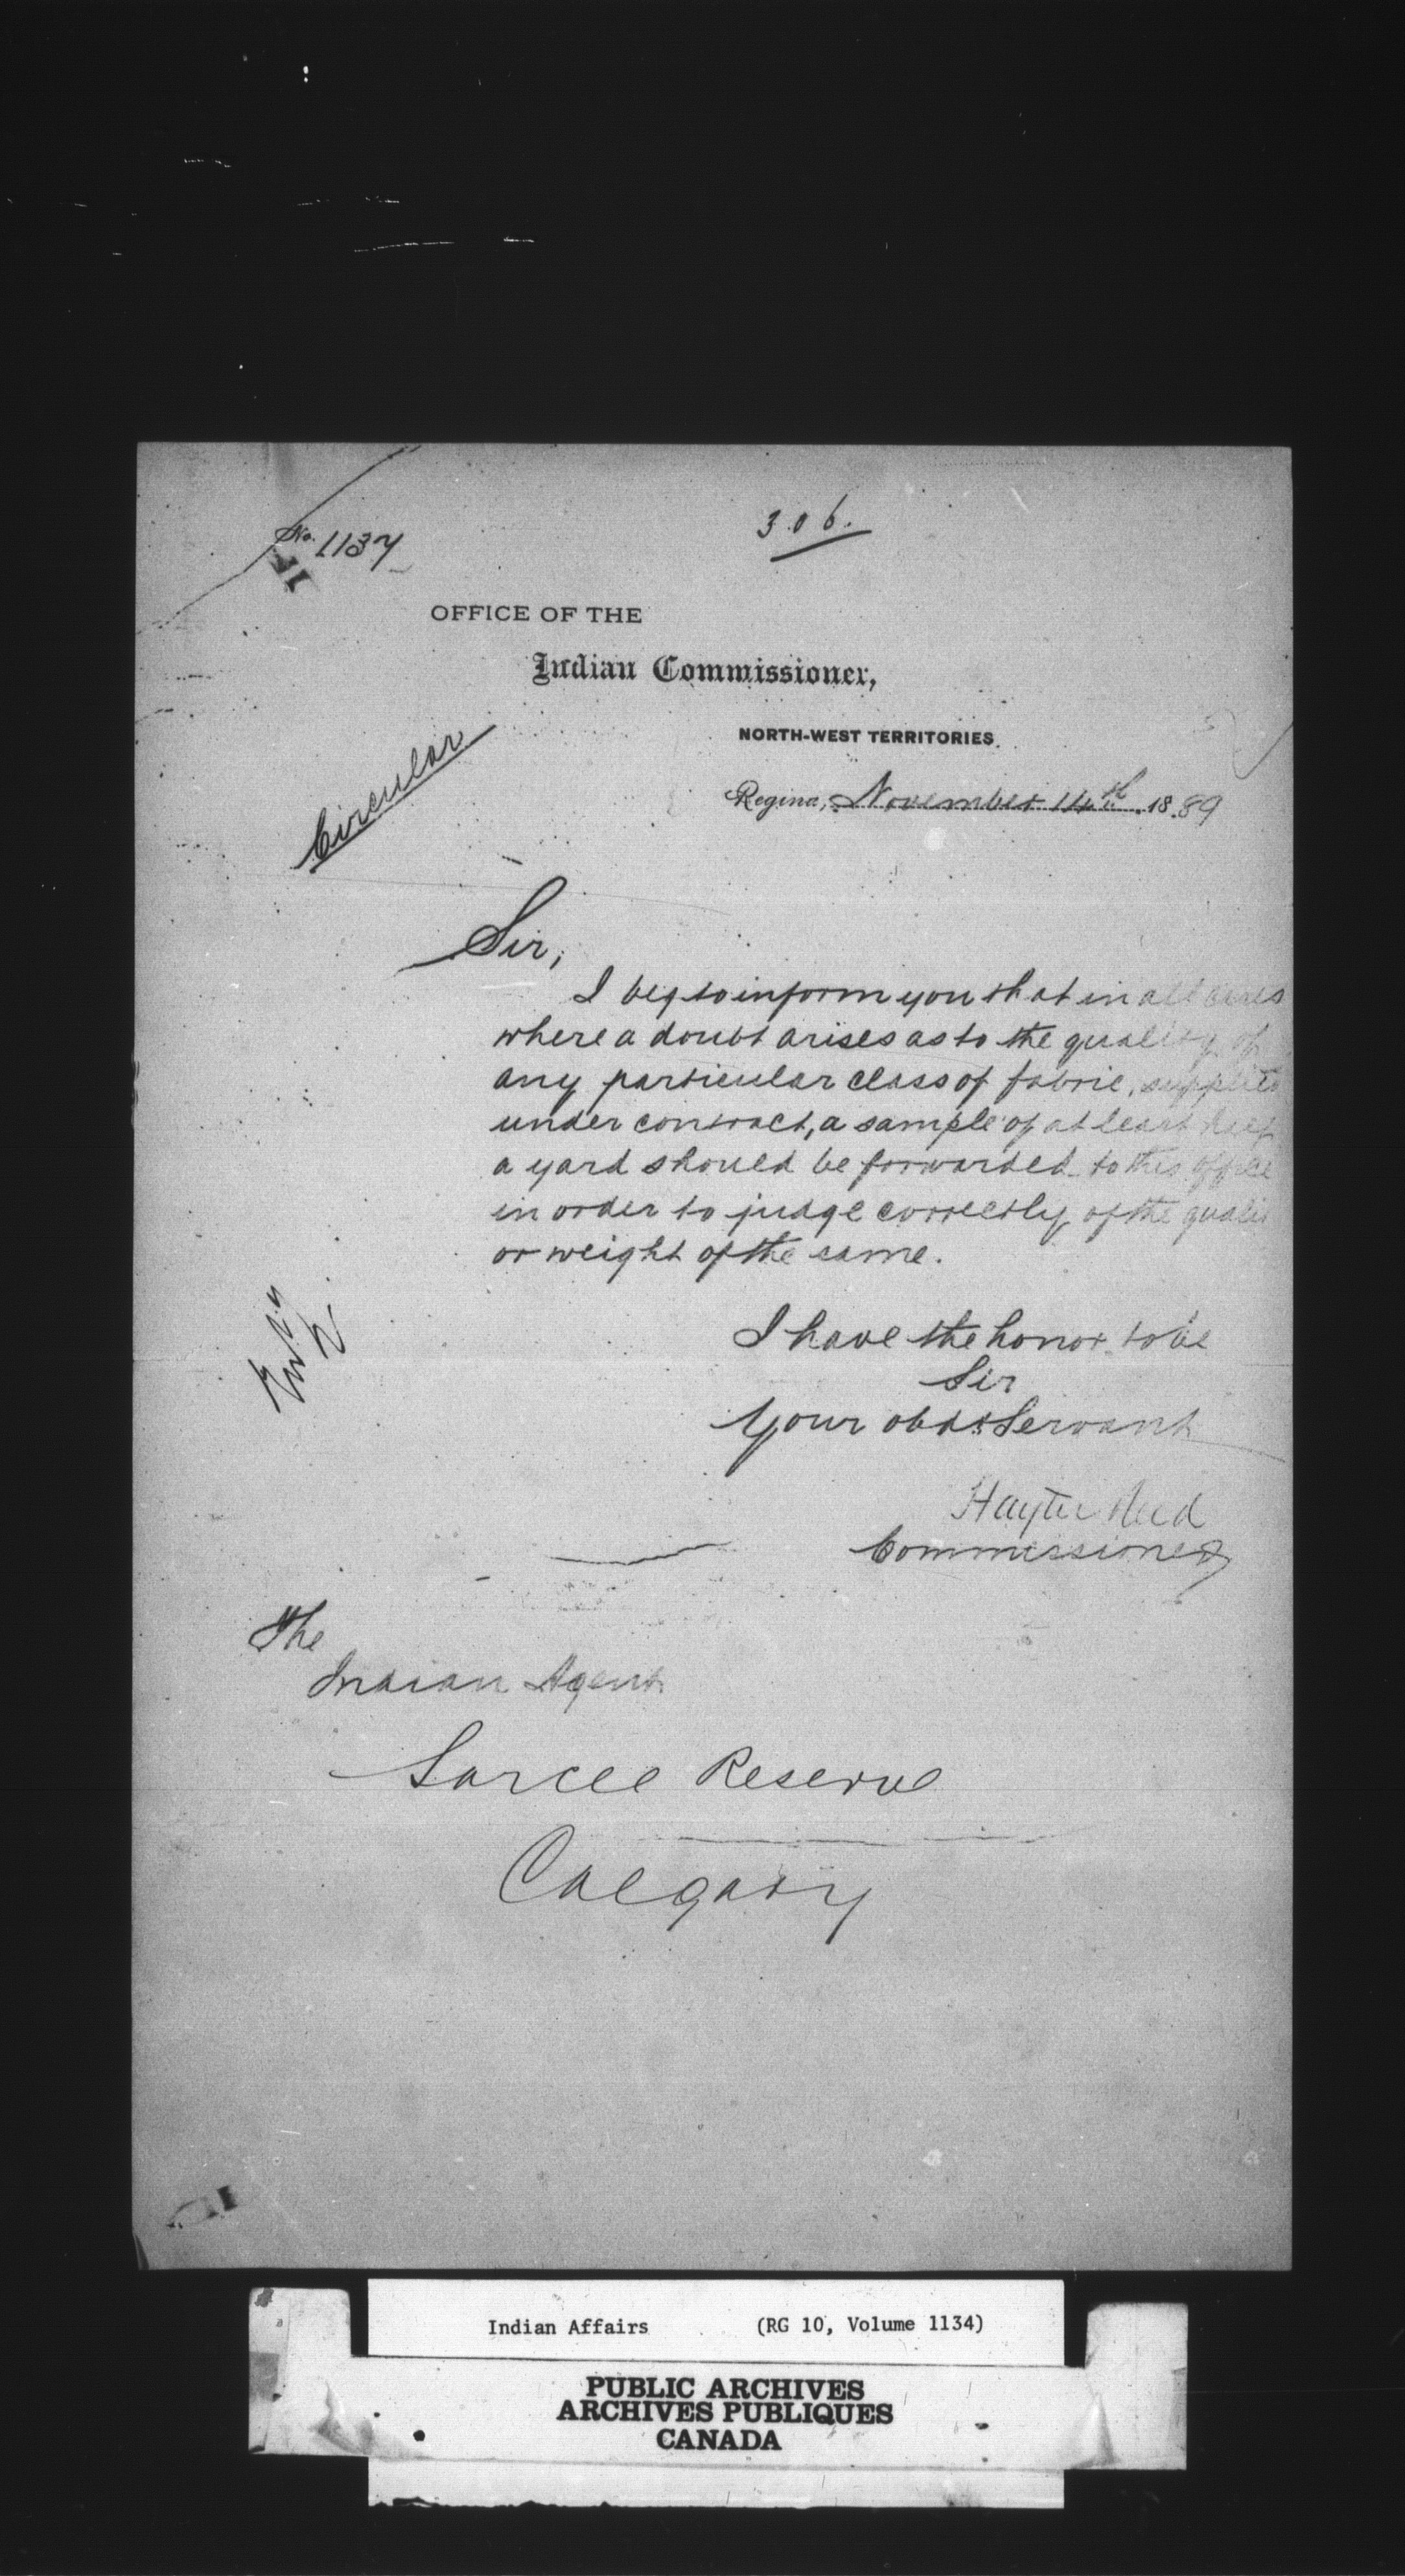 306.
No. 1137
OFFICE OF THE
Indian Commissioner,
NORTH-WEST TERRITORIES.
Circular
Regina, November 14th 1889
Sir,
I beg to inform you that in all cases
where a doubt arises as to the quality of
any particular class of fabric, supplied
under contract, a sample of at least half
a yard should be forwarded to this office
in order to judge correctly of the quality
or weight of the same.
I have the honor to be
Sir
Your obdt Servant
Hayter Reed
Commissioner
The
Indian Agent
Sarcee Reserve
Calgary
Indian Affairs (RG 10, Volume 1134)
PUBLIC ARCHIVES
ARCHIVES PUBLIQUES
CANADA